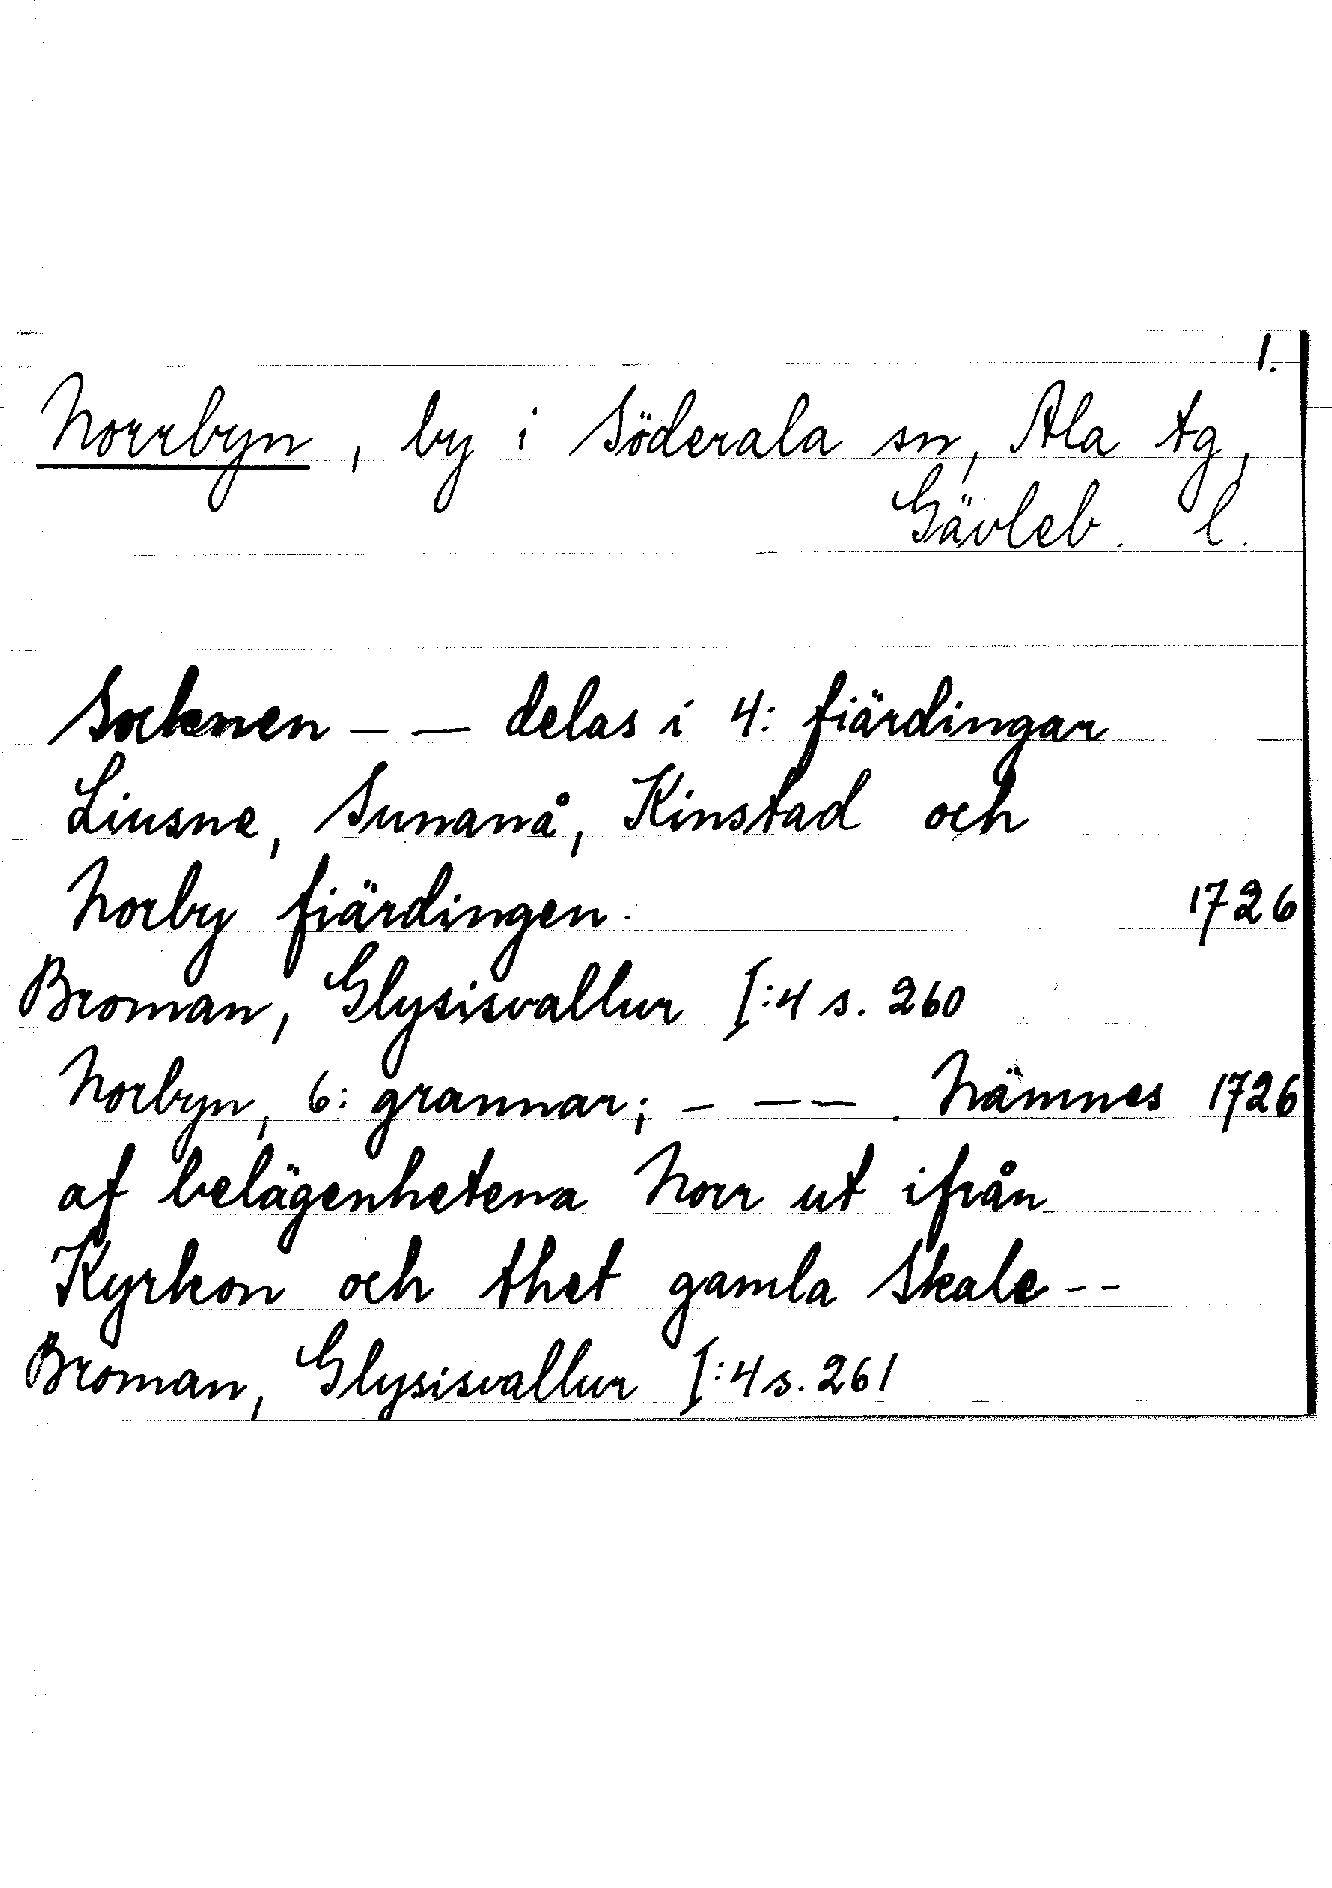 1.
Norrbyn, by i Söderala sn, Ala tg,
Gävleb. l.
Soknen – — delas i 4: fiärdingar
Liusne, Sunanå, Kinstad och
Norby fiärdingen. 1726
Broman, Glysisvallur I:4 s. 260
Norbyn, 6: grannar; – — — . Nämnes 1726
af belägenhetena Norr ut ifrån
Kyrkon och thet gamla Skale - -
Broman, Glysisvallur I:4 s. 261